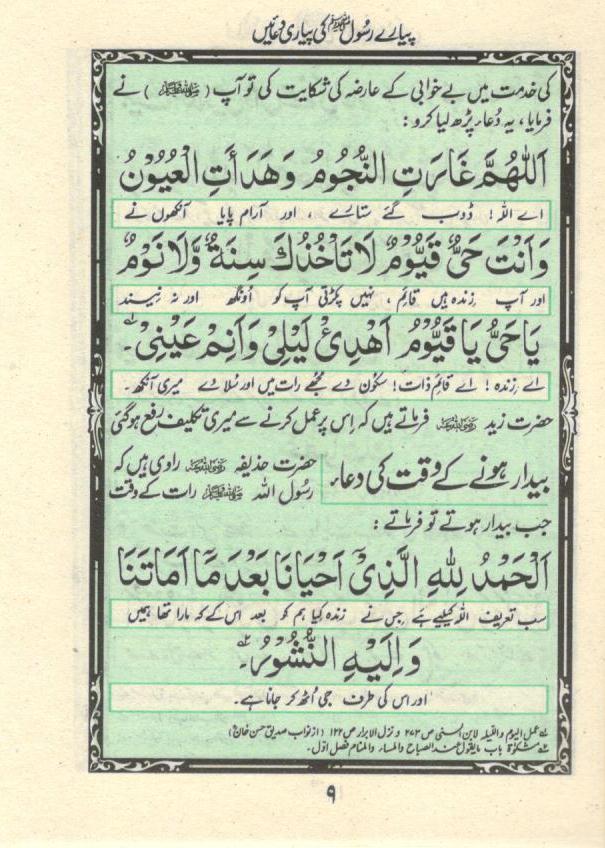 پیارے رسُول ﷺ کی پیاری دعائیں
کی خدمت میں بے خوابی کے عارضہ کی شکایت کی تو آپ ( ﷺ ) نے
فرمایا، یہ دُعا پڑھ لیا کرو :
اَللّٰهُمَّ غَارَتِ النُّجُوْمُ وَهَدَأَتِ الْعُيُوْنُ
اے اللہ! ڈوب گئے ستارے ، اور آرام پایا آنکھوں نے
وَاَنْتَ حَىٌّ قَيُّوْمٌ لَا تَأْخُذُكَ سِنَةٌ وَّلَا نَوْمٌ
اور آپ زندہ ہیں قائم ، نہیں پکڑتی آپ کو اُونگھ اور نہ نیند
يَا حَىُّ يَا قَيُّوْمُ اَهْدِئْ لَيْلِىْ وَاَنِمْ عَيْنِىْ ۔ لہ
اے زندہ ! اے قائم ذات! سکون دے مجھے رات میں اور سُلا دے میری آنکھ ۔
حضرت زید رضی اللہ عنہ فرماتے ہیں کہ اِس پر عمل کرنے سے میری تکلیف رفع ہوگئی
بیدار ہونے کے وقت کی دعاء
حضرت حذیفہ رضی اللہ عنہ راوی ہیں کہ
رسُول اللہ ﷺ رات کے وقت
جب بیدار ہوتے تو فرماتے :
اَلْحَمْدُ لِلّٰهِ الَّذِىْٓ اَحْيَانَا بَعْدَ مَآ اَمَاتَنَا
سب تعریف اللہ کیلیے ہے ، جس نے زندہ کیا ہم کو بعد اس کے کہ مارا تھا ہمیں
وَاِلَيْهِ النُّشُوْرُ ۔ ٢ہ
اور اس کی طرف جی اُٹھ کر جانا ہے ۔
لہ عمل الیوم واللیلہ لابن السنی ص ۲۴۳ و نزل الابرار ص ۱۲۲ (از نواب صدیق حسن خان)
٢ہ مشکوٰۃ باب مایقول عند الصباح والمساء والمنام فصل اوّل ۔
۹